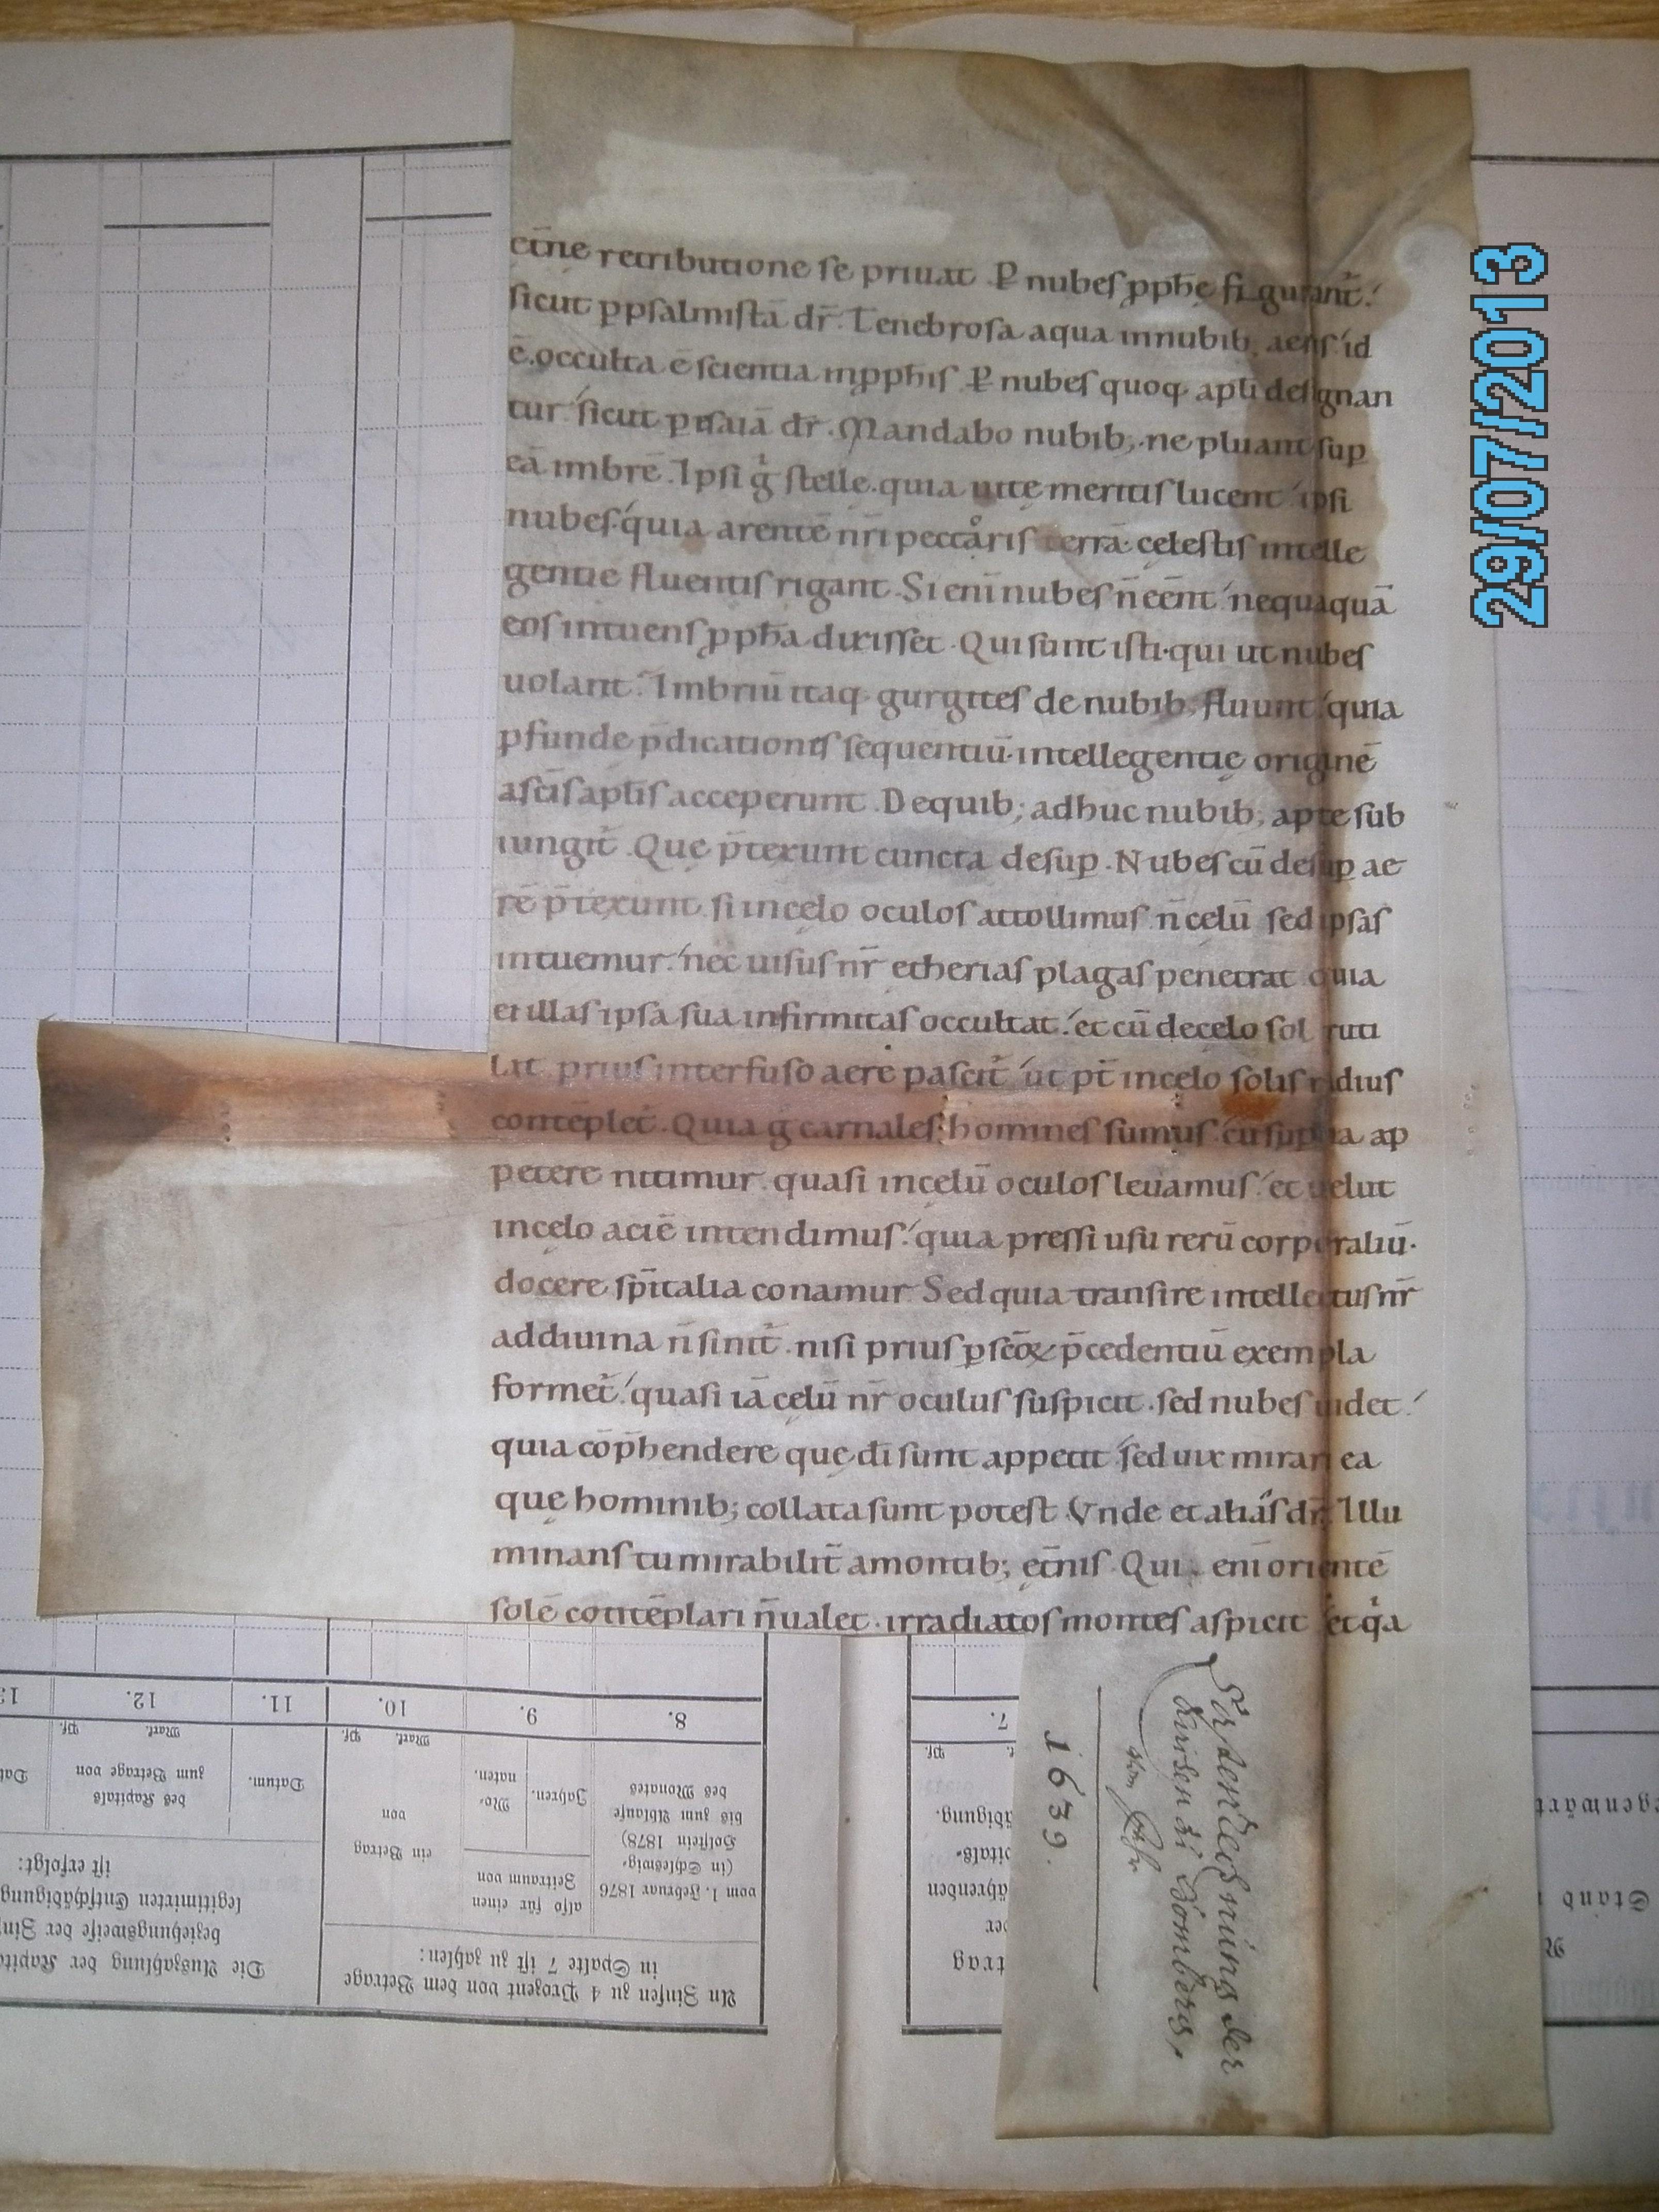 et̄ne retributione se priuat. P̱ nubes ꝓph̄e figurant᷑.
sicut ꝑ psalmistā dr̄. Tenebrosa aqua innubib; aeris. id
ē. occulta ē scientia inꝓph̄is. P̱ nubes quoq; apl̄i designan
tur. sicut ꝑ isaiā dr̄. Mandabo nubib; ne pluant suꝑ
eā imbrē. Ipsi g̊ stelle. quia uite meritis lucent. ipsi
nubes. quia arentē nr̄i pectoris terrā. celestis intelle
gentie fluentis rigant. Si eni nubes n̄ eēnt. nequaquā
eos intuens ꝓph̄a dixisset. Qui sunt isti. qui ut nubes
uolant. Imbriū itaq; gurgites de nubib; fluunt. quia
ꝓfunde p̄dicationis sequentiū. intellegentie originē
asc̄is apl̄is acceperunt. Dequib; adhuc nubib; apte sub
iungit᷑. Que p̄texunt cuncta desuꝑ. Nubes cū desuꝑ ae
rē p̄texunt. si incelo oculos attollimus. n̄ celū sed ipsas
intuemur. nec uisus nr̄ etherias plagas penetrat. quia
et illas ipsa sua infirmitas occultat. et cū decelo sol ruti
lat. prius interfuso aere pascit᷑. ut p᷑t incelo solis radius
contēplet᷑. Quia g̊ carnales homines sumus. cū suꝑna ap
petere nitimur. quasi incelū oculos leuamus. et uelut
incelo aciē intendimus. quia pressi usu rerū corporaliū.
docere sp̄italia conamur. Sed quia transire intellectus nr̄
addiuina n̄ sinit᷑. nisi prius ꝑ sc̄oꝝ p̄cedentiū exempla
formet᷑. quasi iā celū nr̄ oculus suspicit. sed nubes uidet.
quia cōp̄hendere que dī sunt appetit. sed uix mirari ea
que hominib; collata sunt potest. Vnde et alias dr̄. Illu
minans tu mirabilit᷑ amontib; et̄nis. Qui eni orientē
solē contēplari n̄ ualet. irradiatos montes aspicit. et q̊a
zu Homberg,
1639.
8.
9.
10.
11.
12.
7.
An Zinsen zu 4 Prozent von dem Betrage
in Spalte 7 ist zu zahlen:
vom 1. Februar 1876
(in Schleswig-
Holstein 1878)
bis zum Ablaufe
des Monates
also für einen
Zeitraum von
Jahren.
Mo-
naten.
ein Betrag
von
Mark. Pf.
Die Auszahlung der Kapita
beziehungsweise der Zin
legitimirten Entschädigung
ist erfolgt:
Datum.
des Kapitals
zum Betrage von
Mark. Pf.
Dat
trag
der
ährenden
pitals-
ädigung.
Pf.
Stand
egenwärt
29/07/2013